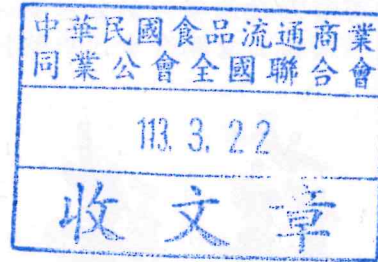 中華民國食品流通商業
同業公會全國聯合會
113. 3. 22
收文章